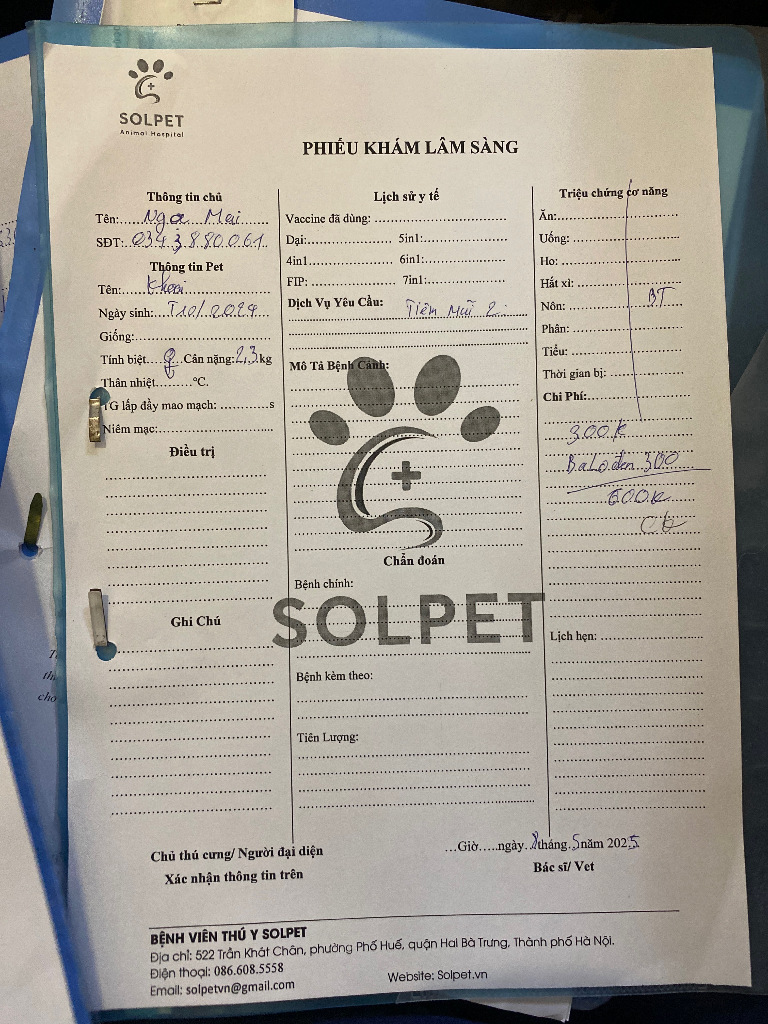 SOLPET
Animal Hospital
PHIẾU KHÁM LÂM SÀNG
Thông tin chủ
Tên: Nga Mai
SĐT: 0343.880.061
Thông tin Pet
Tên: Khoai
Ngày sinh: T10/2024
Giống:
Tính biệt ♀ Cân nặng: 2,3 kg
Thân nhiệt ºC.
TG lấp đầy mao mạch: s
Niêm mạc:
Điều trị
Ghi Chú
Lịch sử y tế
Vaccine đã dùng:
Dại: 5in1:
4in1 6in1:
FIP: 7in1:
Dịch Vụ Yêu Cầu: Tiêm Mũi 2
Mô Tả Bệnh Cảnh:
SOLPET
Chẩn đoán
Bệnh chính:
Bệnh kèm theo:
Tiên Lượng:
Triệu chứng cơ năng
Ăn:
Uống:
Ho:
Hắt xì:
Nôn: BT
Phân:
Tiểu:
Thời gian bị:
Chi Phí:
300k
Balo đen 300
600k
Lịch hẹn:
Chủ thú cưng/ Người đại diện
Xác nhận thông tin trên
...Giờ.....ngày tháng 5 năm 2025
Bác sĩ/ Vet
BỆNH VIÊN THÚ Y SOLPET
Địa chỉ: 522 Trần Khát Chân, phường Phố Huế, quận Hai Bà Trưng, Thành phố Hà Nội.
Điện thoại: 086.608.5558
Email: solpetvn@gmail.com
Website: Solpet.vn